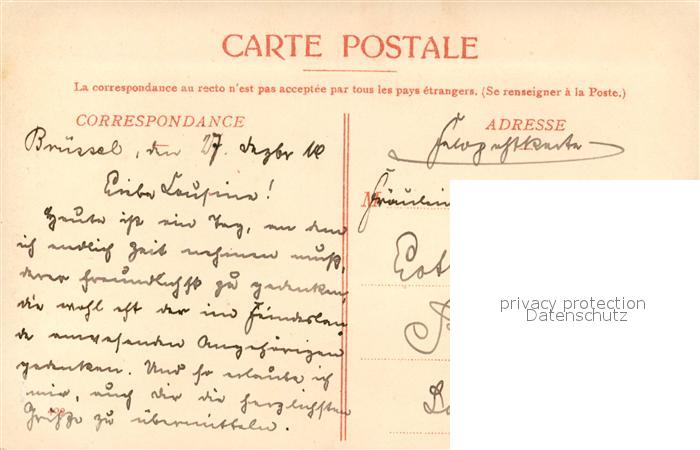 CARTE POSTALE
La correspondance au recto n'est pas acceptée par tous les pays étrangers. (Se renseigner à la Poste.)
CORRESPONDANCE
Brüssel, den 27. Dezbr
Liebe Cousine!
Heute ist ein Tag, an dem
ich endlich Zeit nehmen muß,
derer freundlichst zu gedenken,
die wohl oft der im Feindeslan
de anwesenden Angehörigen
gedenken. Und so erlaube ich
mir, auch dir die herzlichsten
Grüße zu übermitteln.
ADRESSE
Feldpostkarte
M
Fräulein
privacy protection
Datenschutz